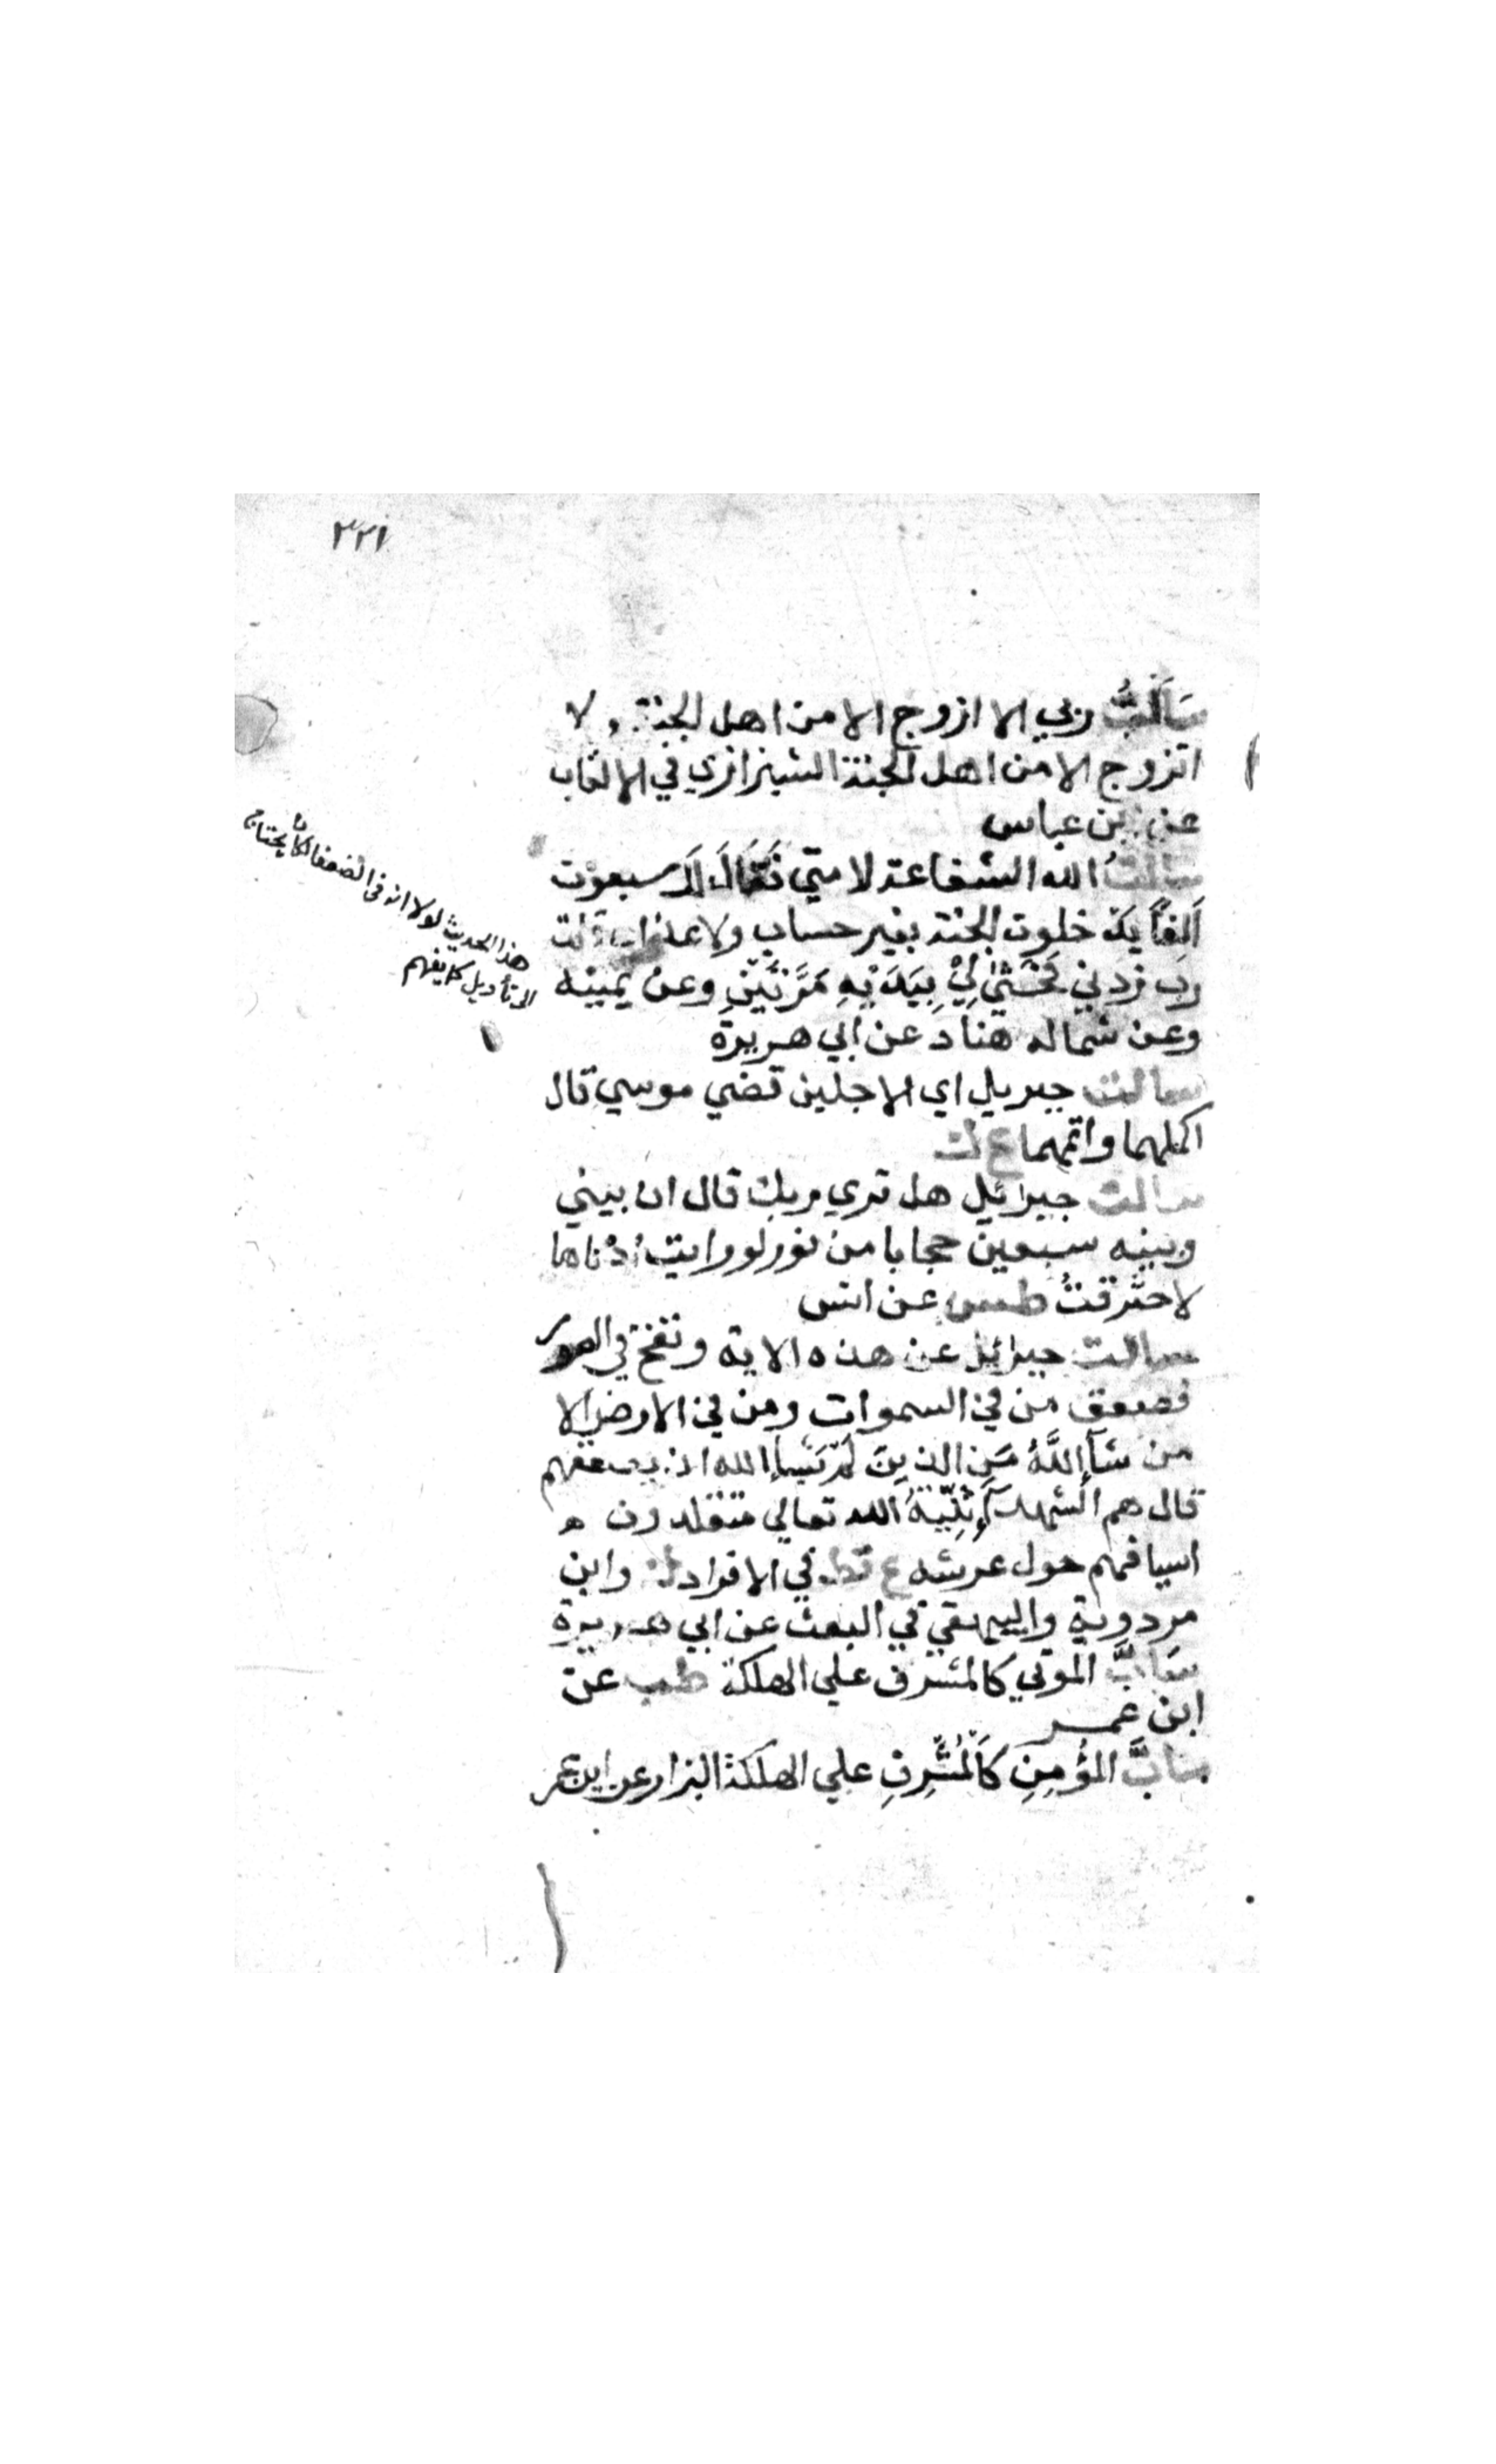 ٣٢١
سَاَلْتُ ربي الا ازوج الا من اهل الجنة ولا
اتزوج الا من اهل الجنة الشيرازي في الالقاب
عن بن عباس
سالتُ الله الشفاعة لامتي فَقَالَ لَكَ سبعون
اَلفاً يدخلون الجنة بغير حساب ولا عذاب قلت
رب زدني فَحَثَىٰ لِيْ بِيَدَيْهِ مَرَّتَيْنِ وعن يمينه
وعن شماله هناد عن ابي هريرة
سالت جبريل اي الاجلين قضي موسي قال
اكملهما واتمهما ع ك
سالت جبرائيل هل تري ربك قال ان بيني
وبينه سبعين حجابا من نور لو رايت اُدْناها
لاحترقتُ طس عن انس
سالت جبرائيل عن هذه الاية ونفخ في الصور
فصعق من في السموات ومن في الارض الا
من شآءَ اللَّهُ مَنِ الذينَ لَمْ يَشَإِ الله ان يصعقهم
قال هم الشهدآءِ ثَنِيَّةُ الله تعالي متقلدون
اسيافهم حول عرشه ع قط في الافراد ك وابن
مردوية والبيهقي في البعث عن ابي هريرة
سَابُّ الموتي كالمشرف علي الهلكة طب عن
ابن عمر
سَابُّ المؤمِنِ كَالْمُشْرِفِ علي الهلكة البزار عن ابن عمر
هذا الحديث لولا انه في الضعفا لكان يحتاج
الى تأويل كما يفهم